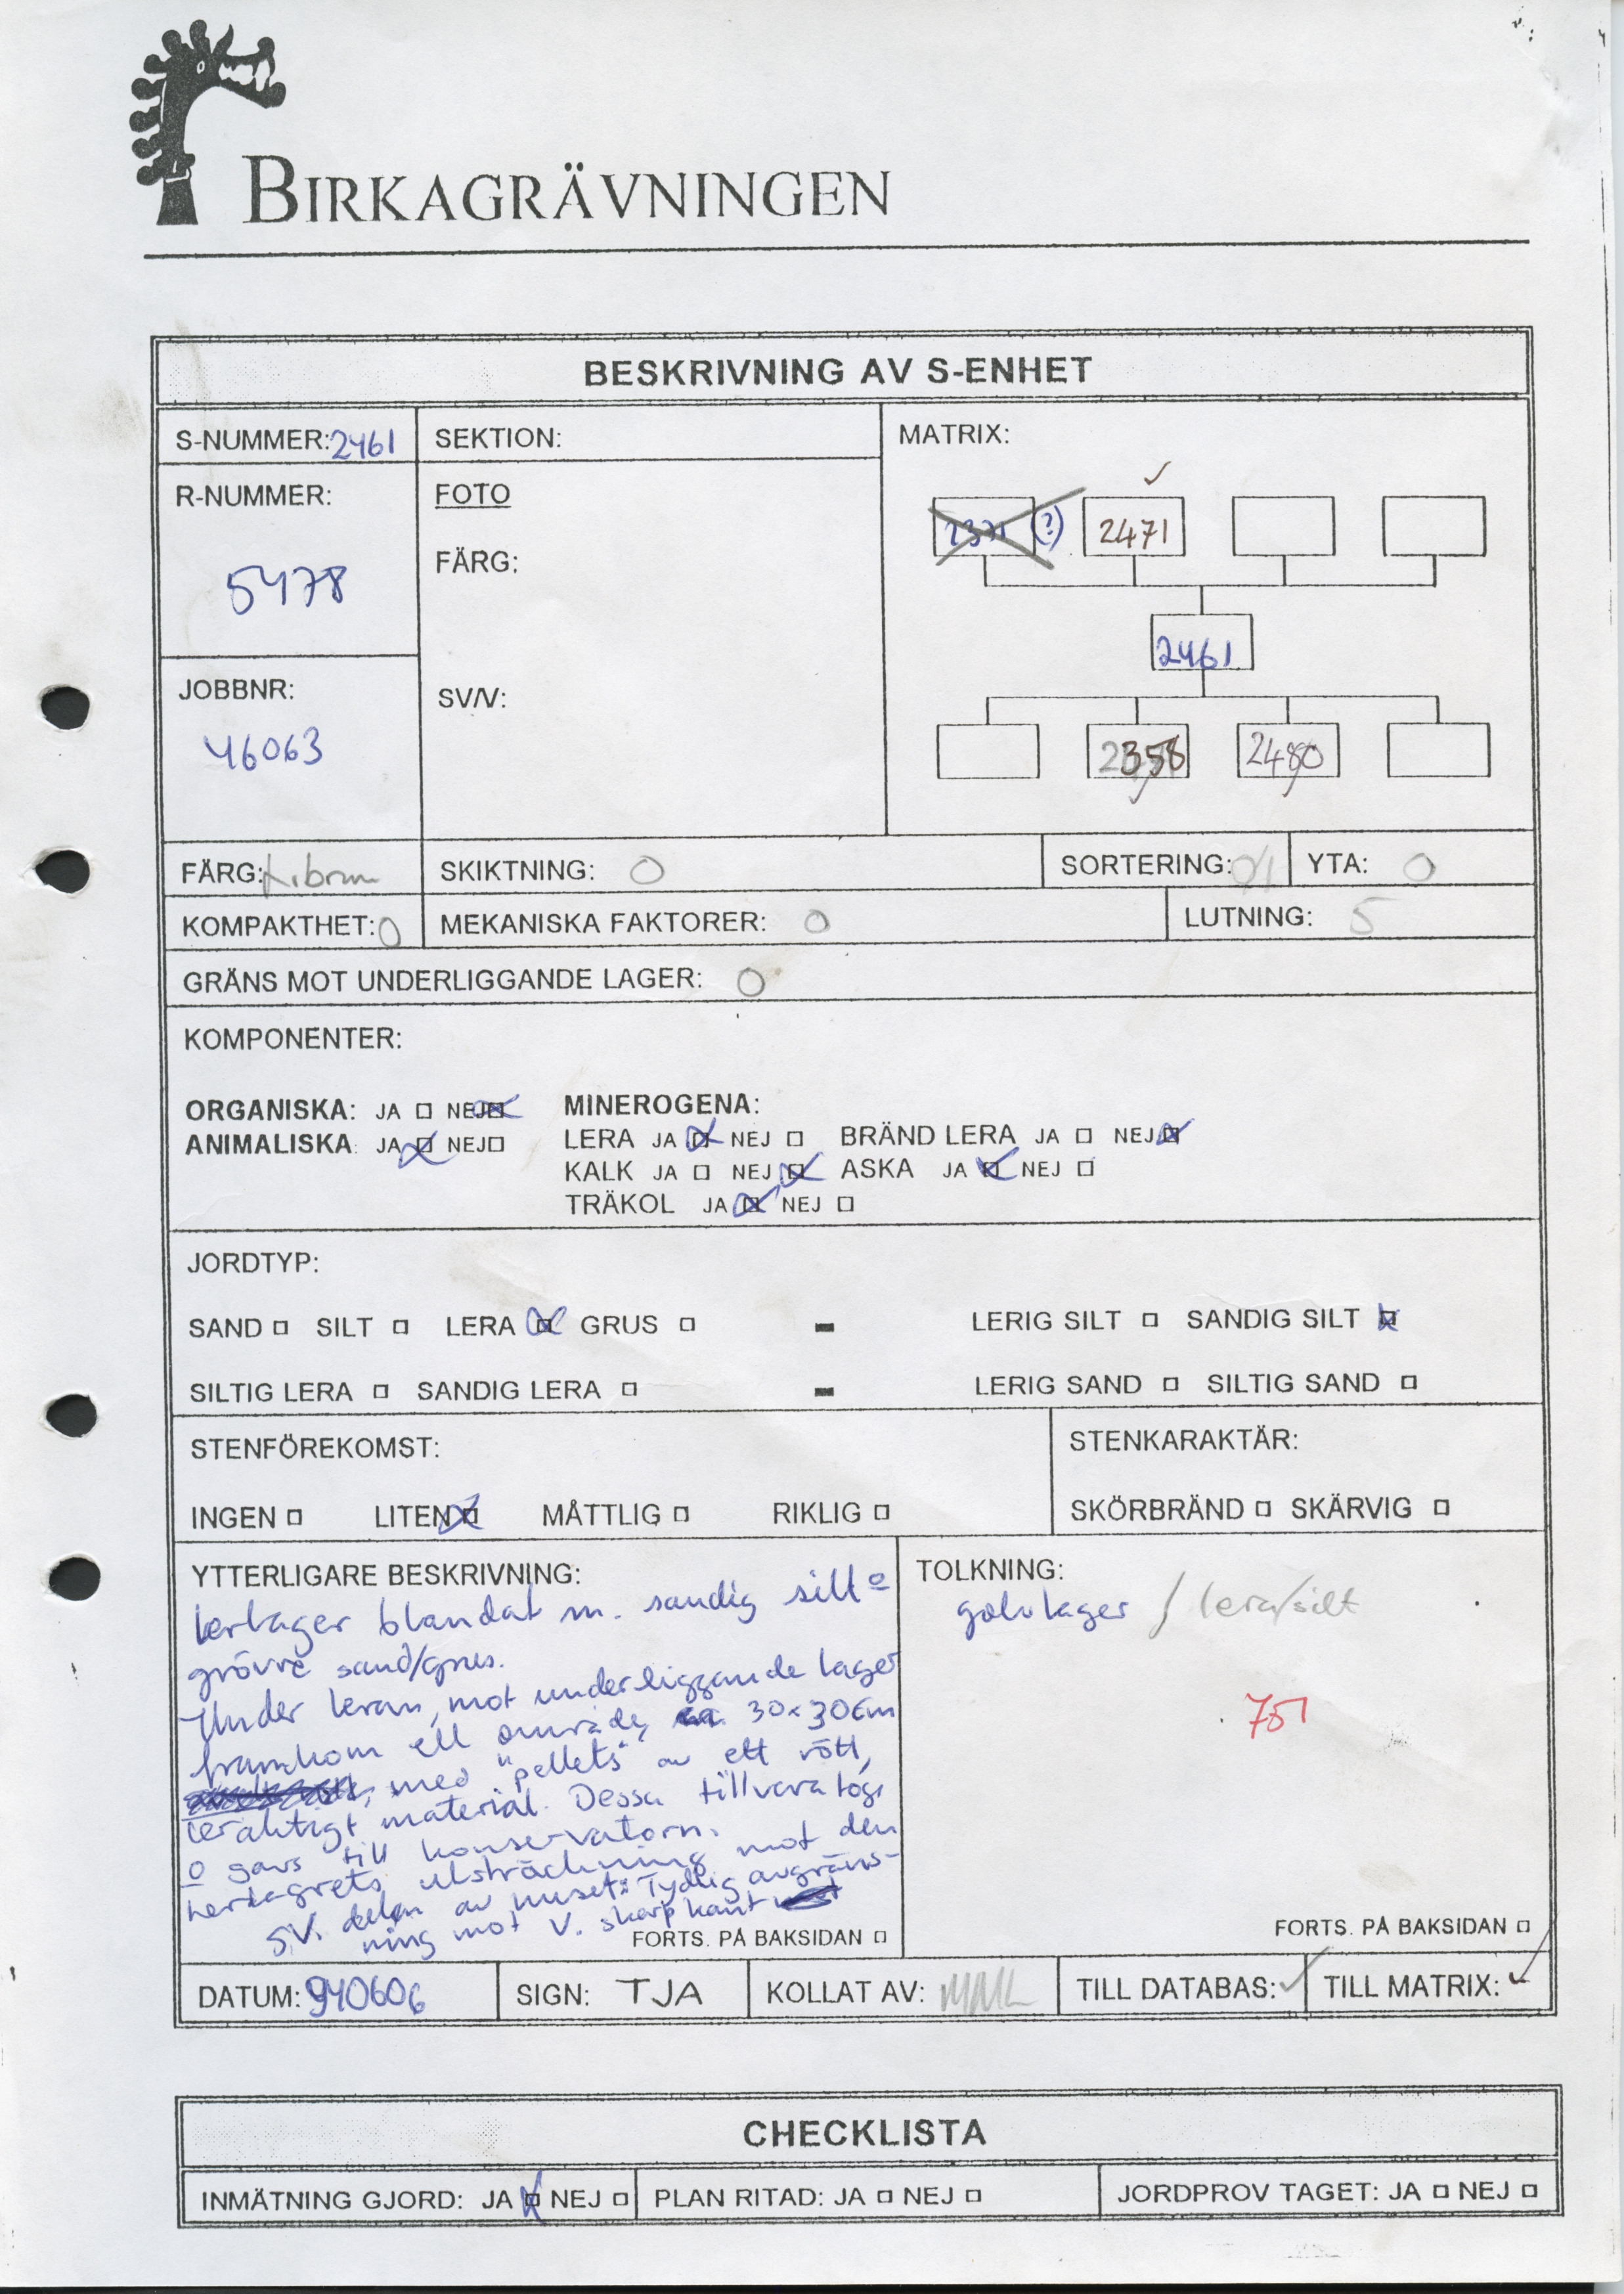 BIRKAGRÄVNINGEN
BESKRIVNING AV S-ENHET
S-NUMMER: 2461
SEKTION:
MATRIX:
R-NUMMER:
5478
FOTO
FÄRG:
SV/V:
(?) 2471
2461
2358 2480
JOBBNR:
46063
FÄRG:
SKIKTNING: 0
SORTERING: 0/1
YTA: 0
KOMPAKTHET: 0
MEKANISKA FAKTORER: 0
LUTNING: 5
GRÄNS MOT UNDERLIGGANDE LAGER: 0
KOMPONENTER:
ORGANISKA: JA NEJ MINEROGENA:
ANIMALISKA: JA NEJ LERA JA NEJ BRÄND LERA JA NEJ
KALK JA NEJ ASKA JA NEJ
TRÄKOL JA NEJ
JORDTYP:
SAND SILT LERA GRUS - LERIG SILT SANDIG SILT
SILTIG LERA SANDIG LERA - LERIG SAND SILTIG SAND
STENFÖREKOMST:
INGEN LITEN MÅTTLIG RIKLIG
STENKARAKTÄR:
SKÖRBRÄND SKÄRVIG
YTTERLIGARE BESKRIVNING:
lerlager blandat m. sandig silt o
grövre sand/grus.
Under leran, mot underliggande lager
framkom ett område, 30x30cm
med "pellets" av ett rött,
leraktigt material. Dessa tillvaratogs
o gavs till konservatorn.
Lerlagrets utsträckning mot den
S.V. delen av huset: Tydlig avgräns-
ning mot V. skarp kant
FORTS. PÅ BAKSIDAN
TOLKNING:
golvlager / lera/silt
751
FORTS. PÅ BAKSIDAN
DATUM: 940606
SIGN: TJA
KOLLAT AV:
TILL DATABAS: ✓
TILL MATRIX: ✓
CHECKLISTA
INMÄTNING GJORD: JA NEJ
PLAN RITAD: JA NEJ
JORDPROV TAGET: JA NEJ